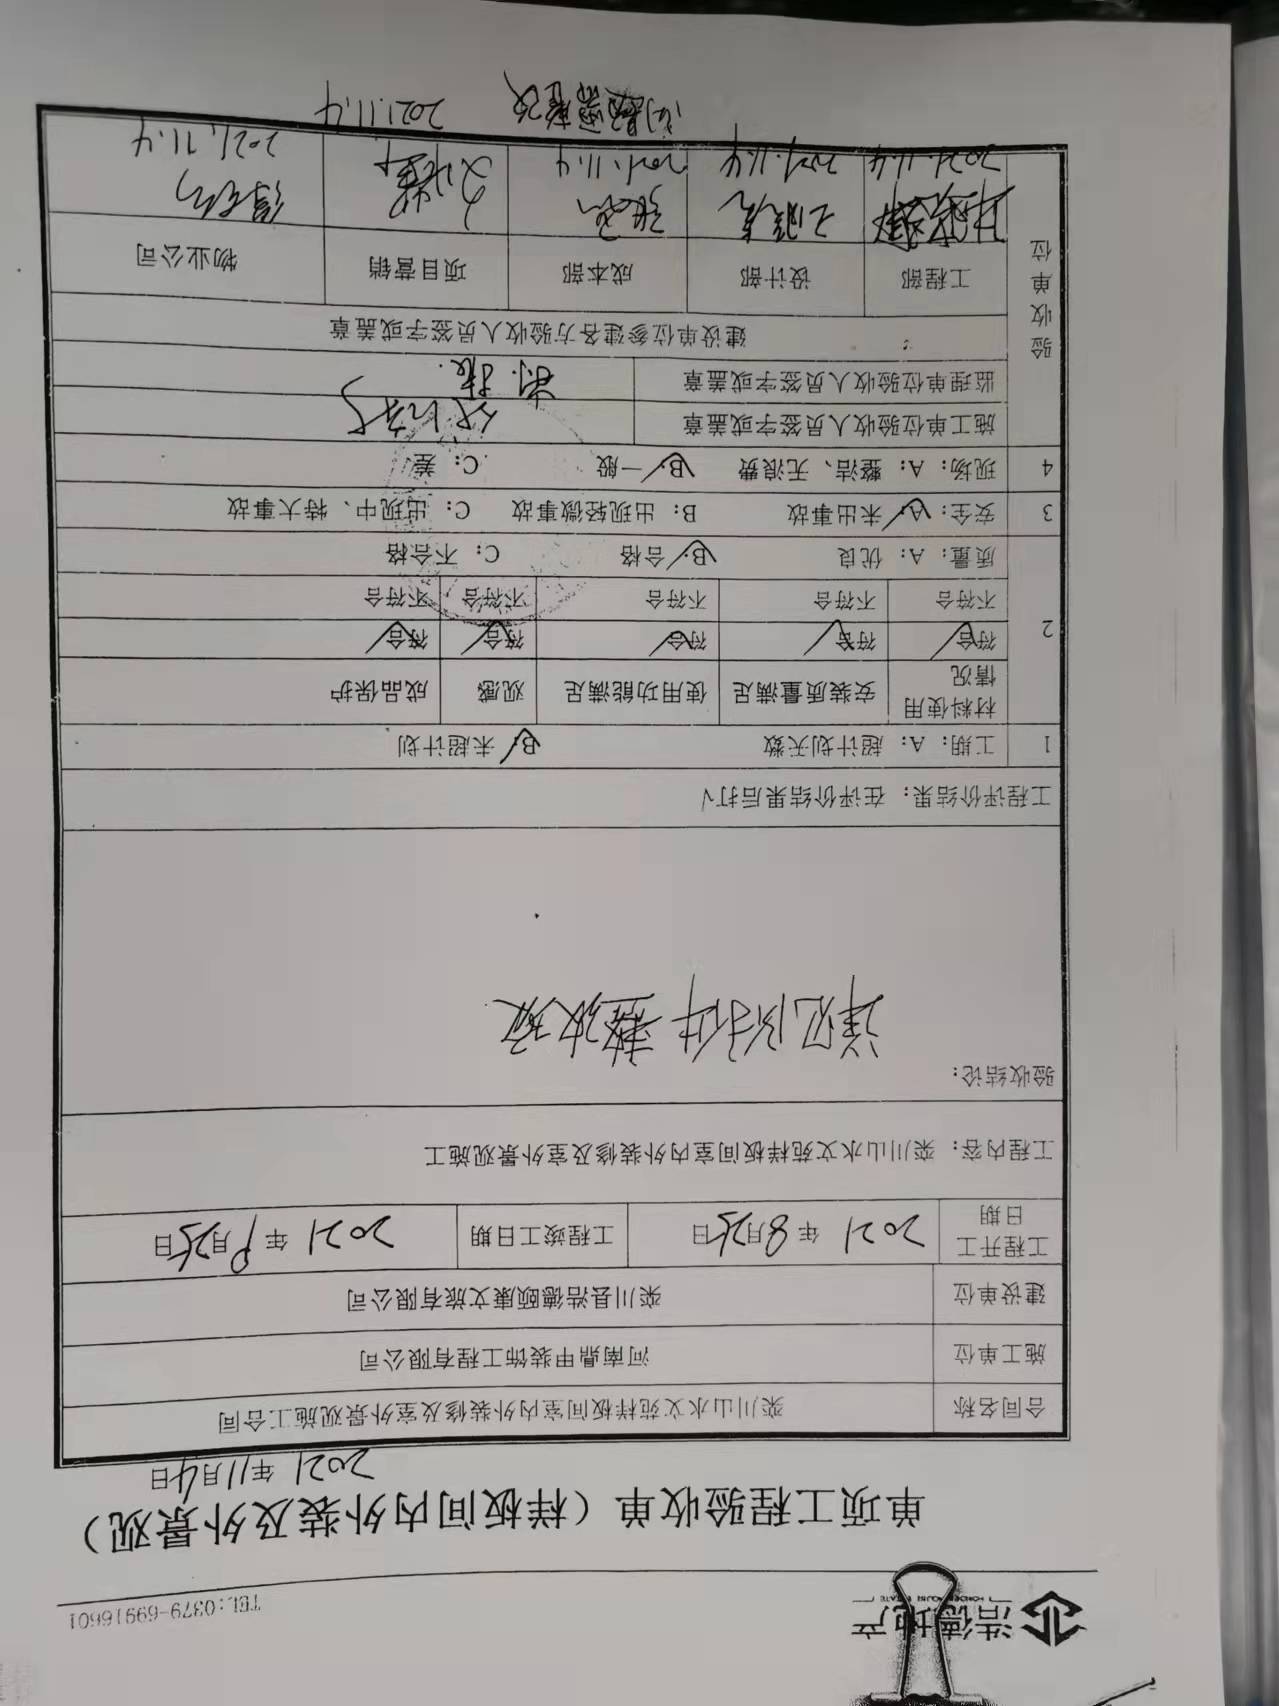 浩德地产
TEL:0379-69916601
单项工程验收单（样板间内外装及外景观）
2021年11月4日
合同名称 栾川山水文苑样板间室内外装修及室外景观施工合同
施工单位 河南鼎甲装饰工程有限公司
建设单位 栾川县浩德颐康文旅有限公司
工程开工日期 2021年8月25日 工程竣工日期 2021年9月25日
工程内容：栾川山水文苑样板间室内外装修及室外景观施工
验收结论：
详见附件整改项
工程评价结果：在评价结果后打√
1 工期：A：超计划天数 B：√未超计划
2 材料使用情况 安装质量满足 使用功能满足 观感 成品保护
符合√ 符合√ 符合√ 符合√ 符合√
不符合 不符合 不符合 不符合 不符合
质量：A：优良 B：√合格 C：不合格
3 安全：A：√未出事故 B：出现轻微事故 C：出现中、特大事故
4 现场：A：整洁、无浪费 B：√一般 C：差
验收单位
施工单位验收人员签字或盖章
监理单位验收人员签字或盖章
建设单位参建各方验收人员签字或盖章
工程部 设计部 成本部 项目营销 物业公司
2021.11.4 2021.11.4 2021.11.4 2021.11.4
问题需整改 2021.11.4